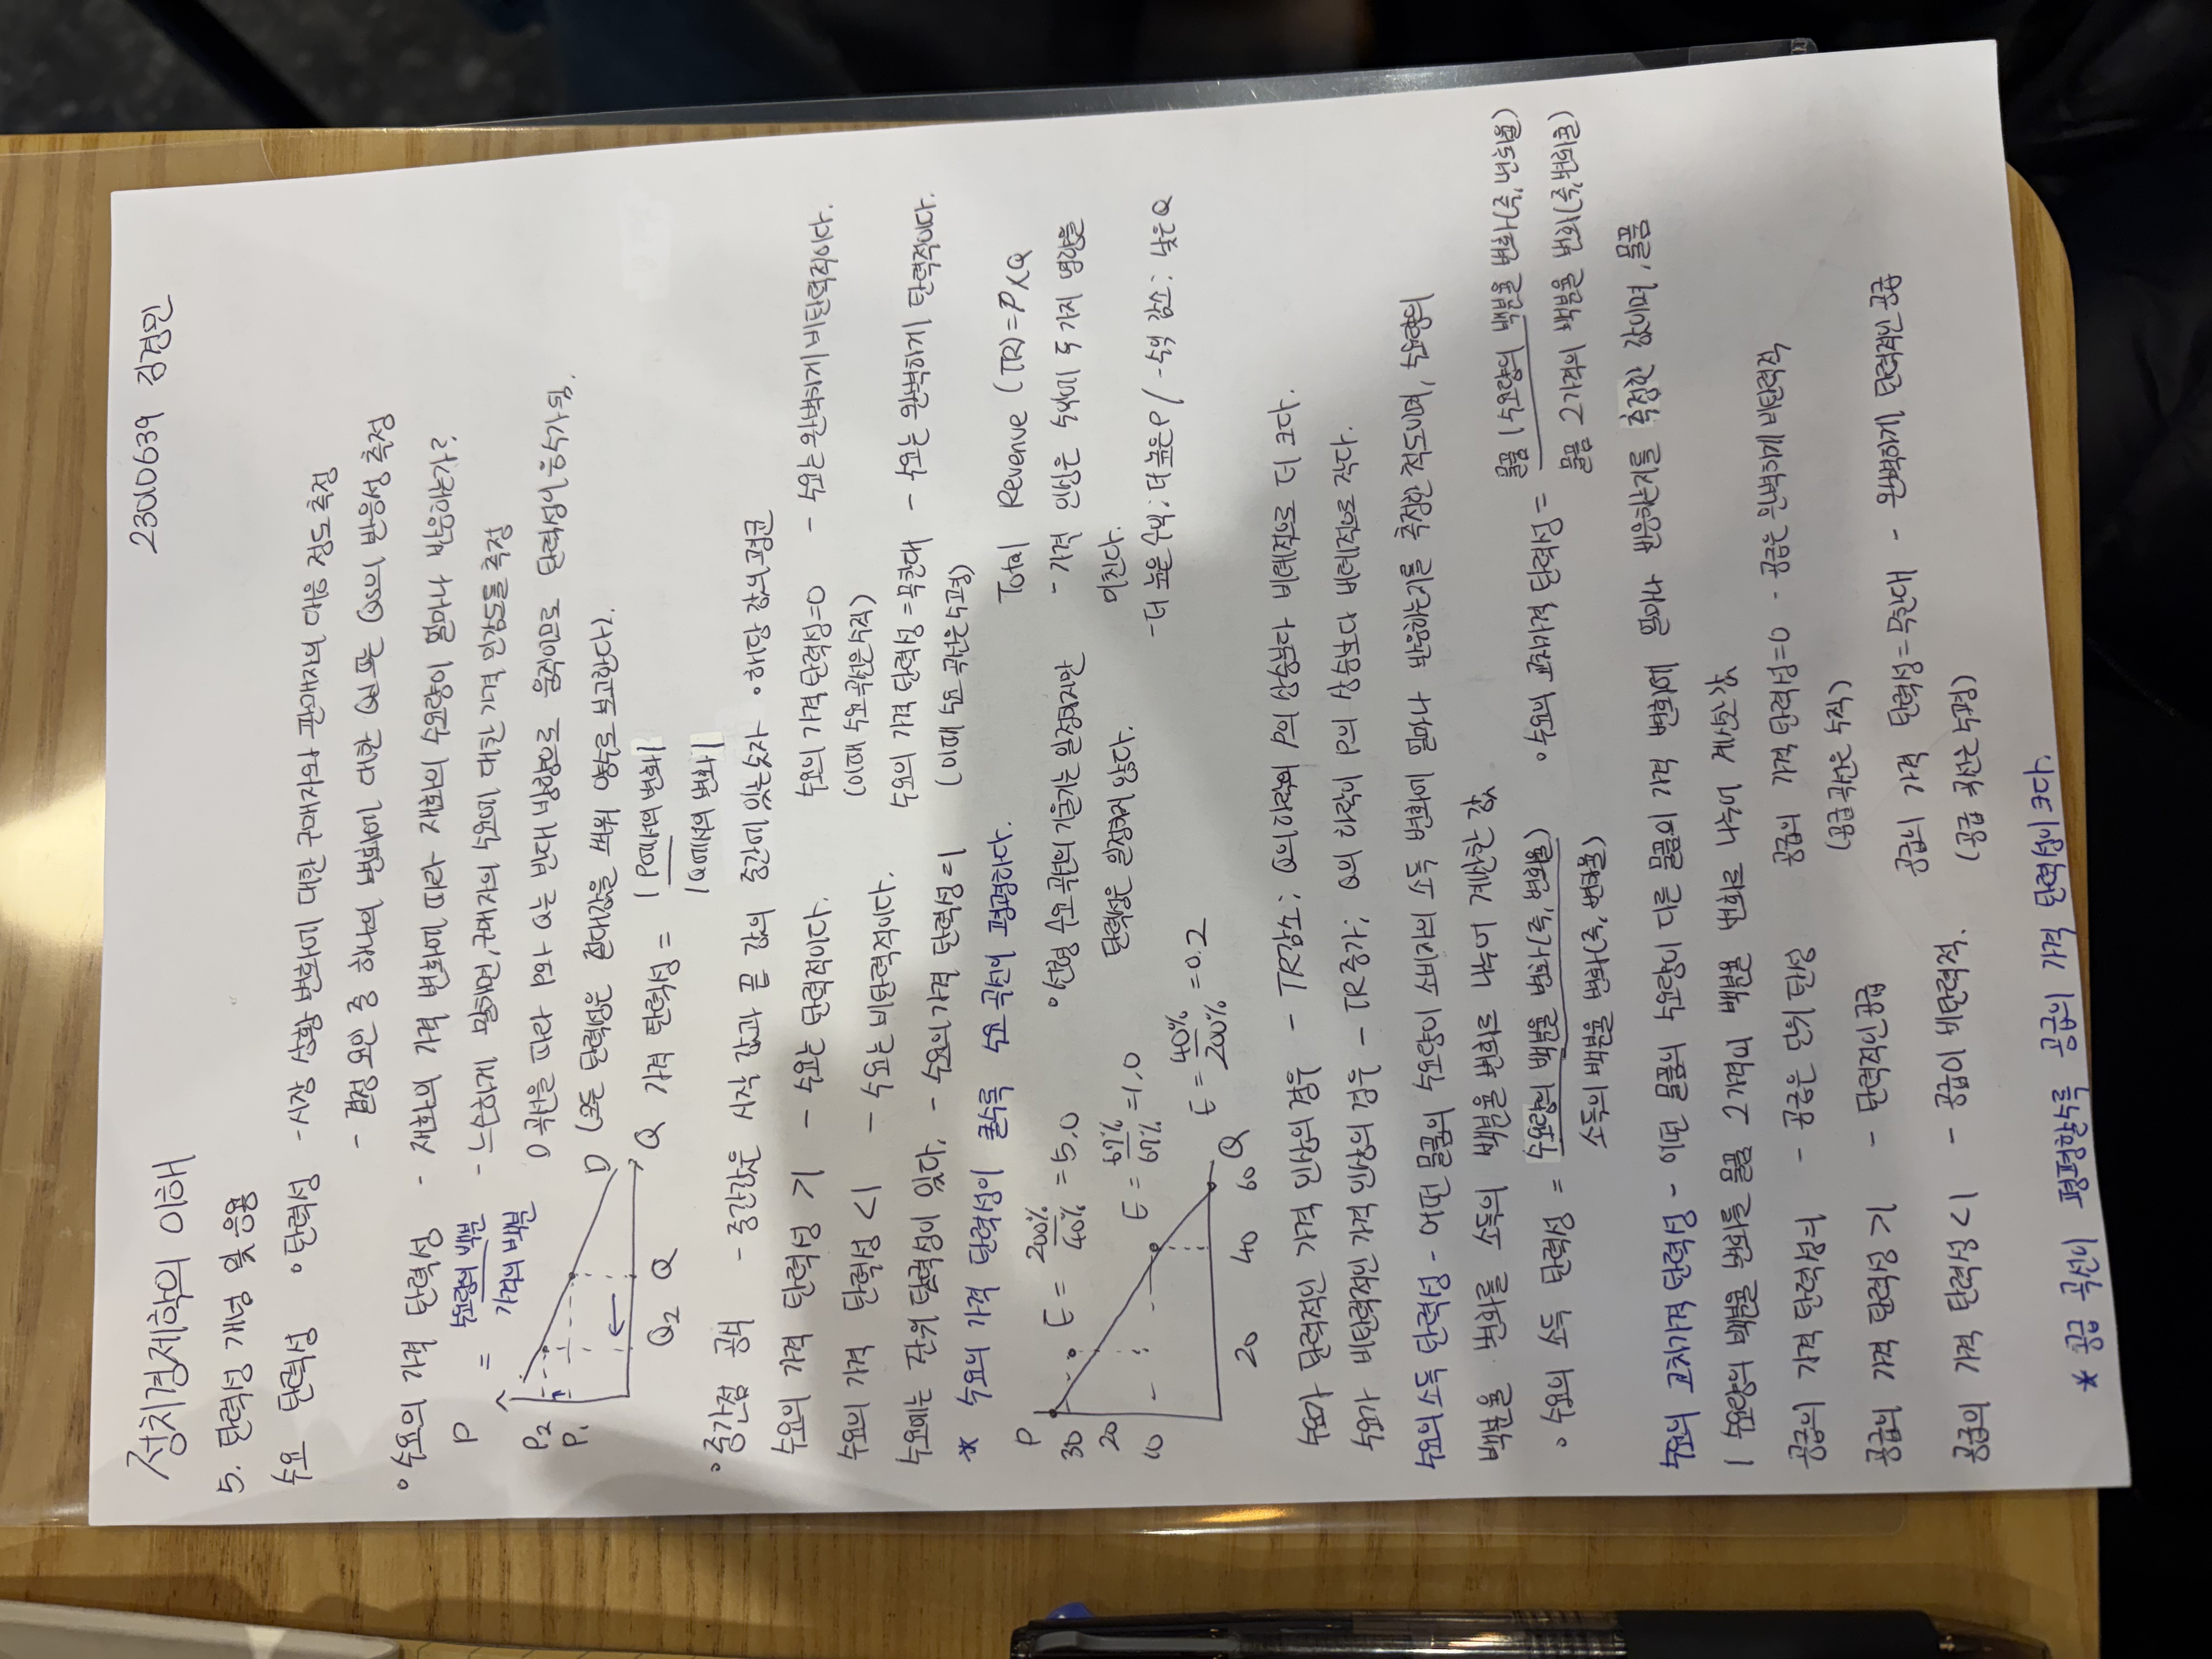 정치경제학의 이해 23010639 김경민
5. 탄력성 개념 및 응용
수요 탄력성 • 탄력성 - 시장 상황 변화에 대한 구매자와 판매자의 대응 정도 측정
- 결정 요인 중 하나의 변화에 대한 Qd 또는 Qs의 반응성 측정
• 수요의 가격 탄력성 - 재화의 가격 변화에 따라 재화의 수요량이 얼마나 반응하는가?
P = 수요량의 백분 - 느슨하게 말해면/구매자의 수요에 대한 가격 민감도를 측정
가격의 백분 D곡선을 따라 P와 Q는 반대 방향으로 움직이므로 탄력성이 음수가 됨.
P2 P1 D (모든 탄력성은 절대값을 씌워 양수로 보고한다).
Q2 Q Q 가격 탄력성 = |P에서의 변화|
|Q에서의 변화|
• 중간점 공식 - 중간값은 시작 값과 끝 값의 중간에 있는 숫자 • 해당 값의 평균
수요의 가격 탄력성 >1 - 수요는 탄력적이다. 수요의 가격 탄력성=0 - 수요는 완벽하게 비탄력적이다.
수요의 가격 탄력성 <1 - 수요는 비탄력적이다. (이때 수요곡선은 수직)
수요에는 단위 탄력성이 있다. - 수요의 가격 탄력성=1 수요의 가격 탄력성=무한대 - 수요는 완벽하게 탄력적이다.
(이때 수요 곡선은 수평)
* 수요의 가격 탄력성이 클수록 수요 곡선이 평평하다.
P Total Revenue (TR)=P×Q
30 E = 200% / 40% = 5.0 • 선형 수요 곡선의 기울기는 일정하지만 - 가격 인상은 수익에 두 가지 영향을
20 E = 67% / 67% = 1.0 탄력성은 일정하지 않다. 미친다.
10 E = 40% / 200% = 0.2 - 더 높은 수익: 더 높은 P / - 수익 감소: 낮은 Q
20 40 60 Q
수요가 탄력적인 가격 인상의 경우 - TR감소; Q의 하락이 P의 상승보다 비례적으로 더 크다.
수요가 비탄력적인 가격 인상의 경우 - TR증가; Q의 하락이 P의 상승보다 비례적으로 작다.
수요의 소득 탄력성 - 어떤 물품의 수요량이 소비자의 소득 변화에 얼마나 반응하는지를 측정한 척도이며, 수요량의
백분율 변화를 소득의 백분율 변화로 나누어 계산한 값
• 수요의 소득 탄력성 = 수요량의 백분율 변화(즉, 변화율) • 수요의 교차가격 탄력성 = 물품 1 수요량의 백분율 변화(즉, 변화율)
소득의 백분율 변화(즉, 변화율) 물품 2 가격의 백분율 변화(즉, 변화율)
수요의 교차가격 탄력성 - 어떤 물품의 수요량이 다른 물품의 가격 변화에 얼마나 반응하는지를 측정한 값이며, 물품
1 수요량의 백분율 변화를 물품 2 가격의 백분율 변화로 나누어 계산한 값
공급의 가격 탄력성의 - 공급은 단위 탄성 공급의 가격 탄력성=0 - 공급은 완벽하게 비탄력적
(공급 곡선은 수직)
공급의 가격 탄력성 >1 - 탄력적인 공급 공급의 가격 탄력성=무한대 - 완벽하게 탄력적인 공급
공급의 가격 탄력성 <1 - 공급이 비탄력적. (공급 곡선은 수평)
* 공급 곡선이 평평할수록 공급의 가격 탄력성이 크다.